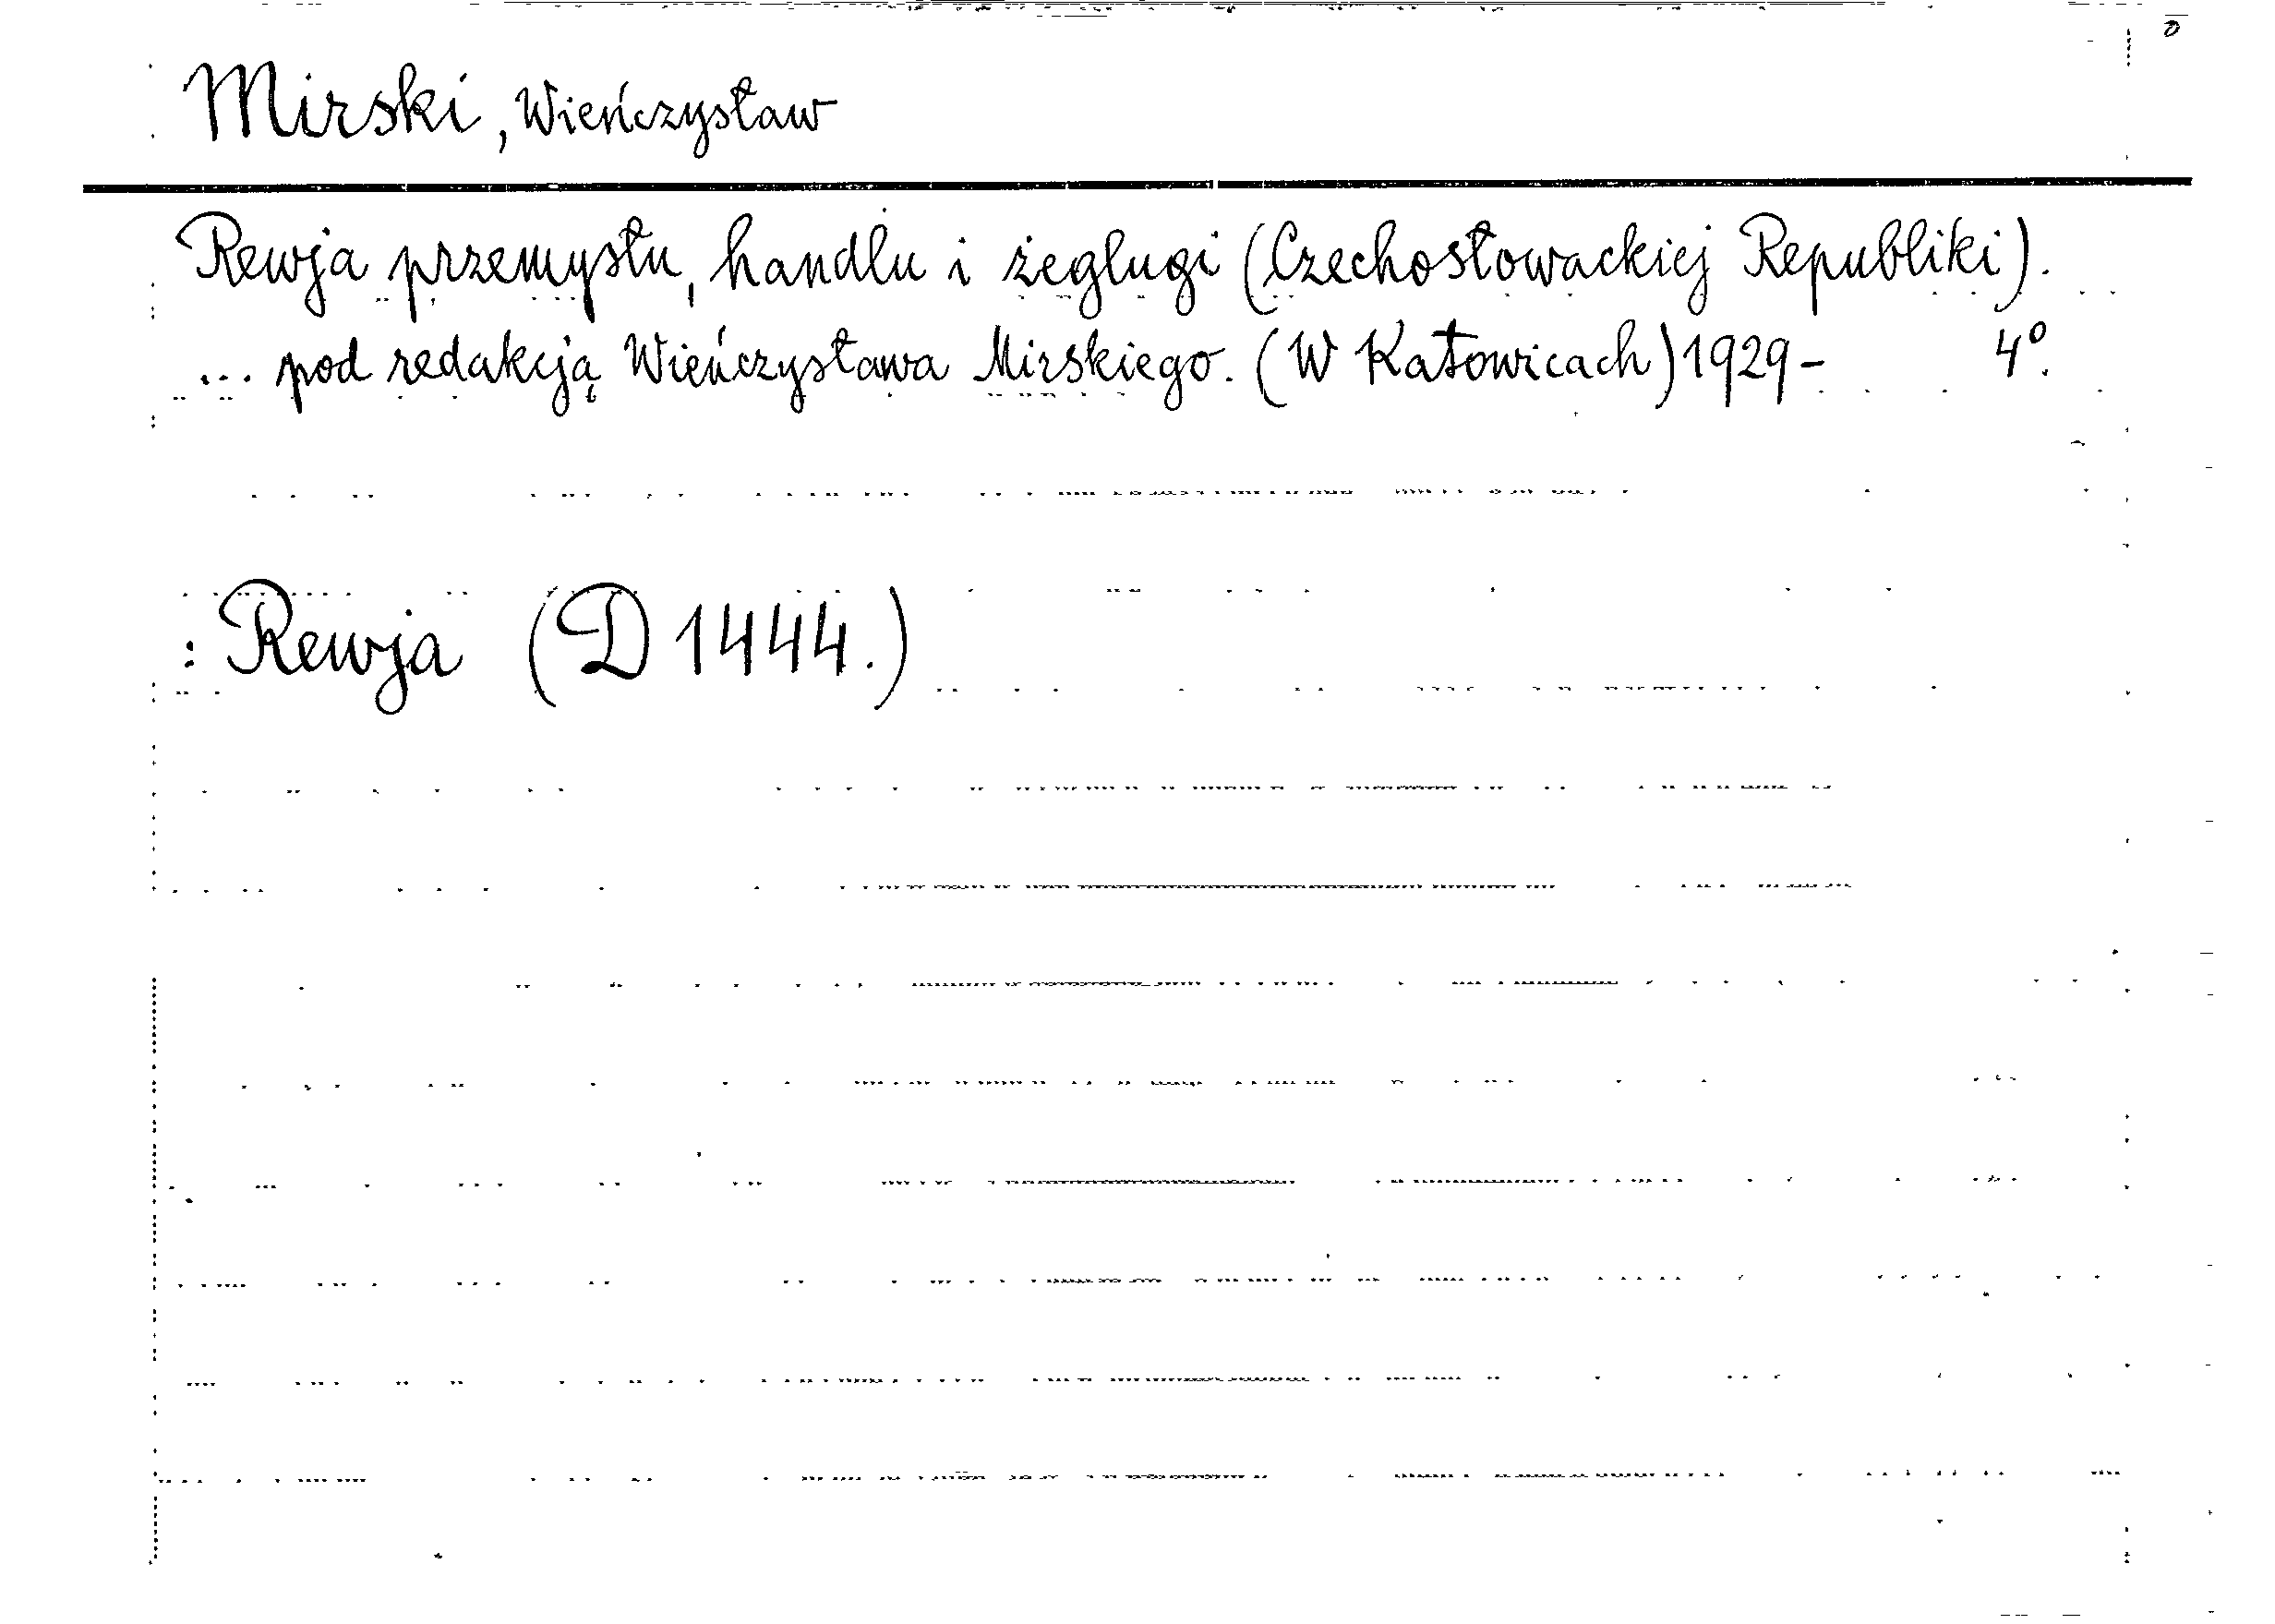 Mirski, Wieńczysław
Rewja przemysłu, handlu i żeglugi (Czechosłowackiej Republiki).
... pod redakcją Wieńczysława Mirskiego. (W Katowicach) 1929- 4º.
: Rewja (D 1444.)